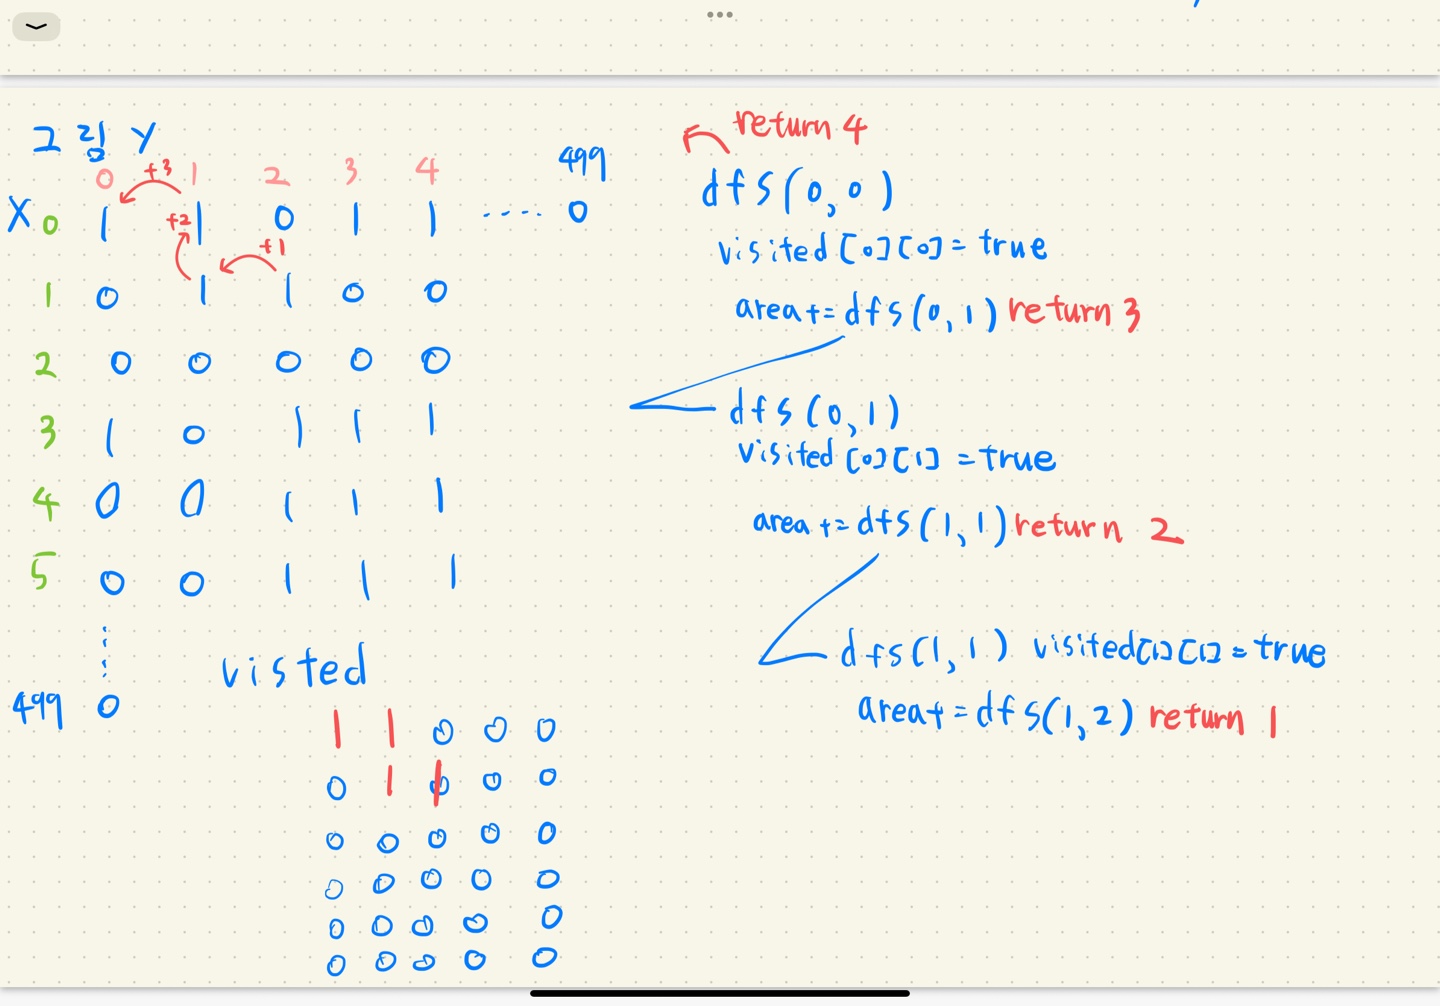 그림 Y
0 1 2 3 4 499
+3
X 0 1 1 0 1 1 ..... 0
+2 +1
1 0 1 1 0 0
2 0 0 0 0 0
3 1 0 1 1 1
4 0 0 1 1 1
5 0 0 1 1 1
499 0
visted
1 1 0 0 0
0 1 1 0 0
0 0 0 0 0
0 0 0 0 0
0 0 0 0 0
0 0 0 0 0
return 4
dfs(0,0)
visited[0][0]=true
area+=dfs(0,1) return 3
dfs(0,1)
visited[0][1]=true
area+=dfs(1,1) return 2
dfs(1,1) visited[1][1]=true
area+=dfs(1,2) return 1